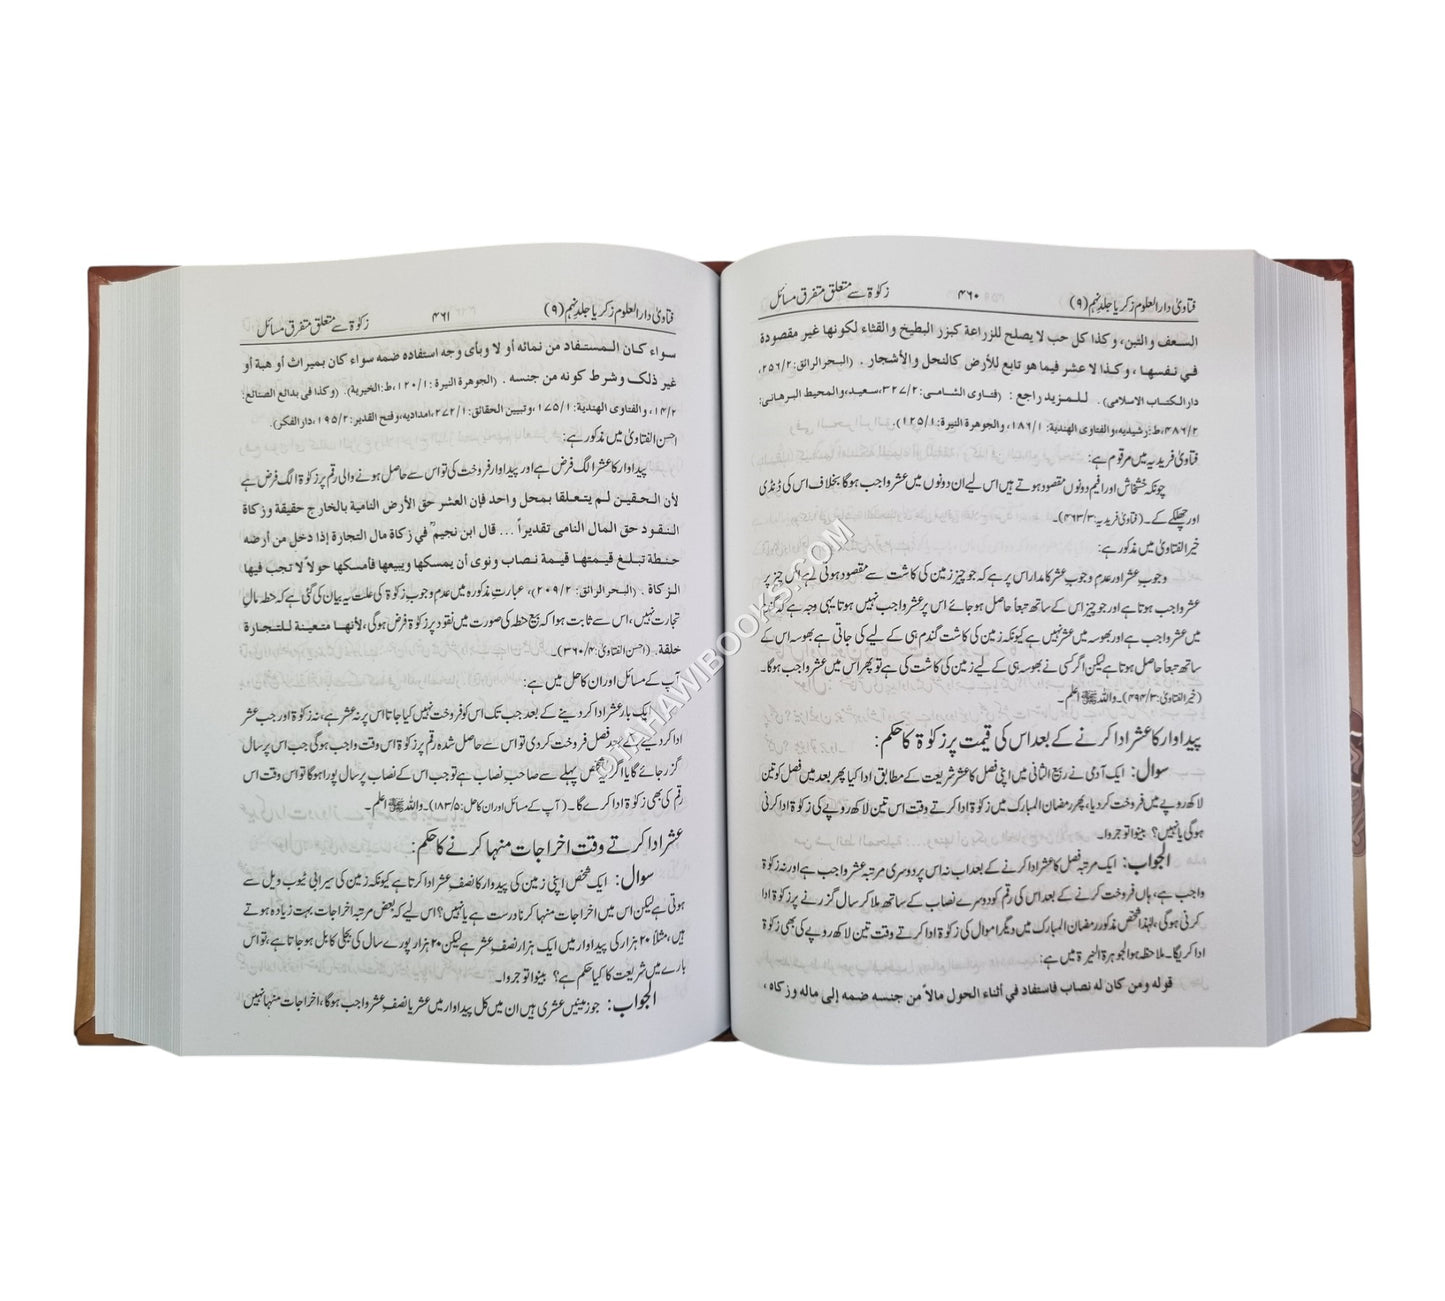 فتاویٰ دار العلوم زکریا جلد نہم (۹) ۴۶۰ زکوٰۃ سے متعلق متفرق مسائل
السعف والتبن، وكذا كل حب لا يصلح للزراعة كبزر البطيخ والقثاء لكونها غير مقصودة
في نفسها، وكذا لا عشر فيما هو تابع للأرض كالنخل والأشجار. (البحر الرائق: ۲/۲۵۶،
دار الكتاب الاسلامى). للمزيد راجع: (فتاوى الشامى: ۲/۳۲۷،سعيد،والمحيط البرهانى:
۲/۴۸۶،ط:رشيديه،والفتاوى الهندية: ۱/۱۸۶، والجوهرة النيرة: ۱/۱۲۵).
فتاویٰ فریدیہ میں مرقوم ہے:
چونکہ خشخاش اور افیم دونوں مقصود ہوتے ہیں اس لیے ان دونوں میں عشر واجب ہوگا بخلاف اس کی ڈنڈی
اور چھلکے کے۔ (فتاویٰ فریدیہ: ۳/۴۶۳)۔
خیر الفتاویٰ میں مذکور ہے:
وجوب عشر اور عدم وجوب عشر کا مدار اس پر ہے کہ جو چیز زمین کی کاشت سے مقصود ہوتی ہے اس چیز پر
عشر واجب ہوتا ہے اور جو چیز اس کے ساتھ تبعاً حاصل ہو جائے اس پر عشر واجب نہیں ہوتا یہی وجہ ہے کہ گندم
میں عشر واجب ہے اور بھوسہ میں عشر نہیں ہے کیونکہ زمین کی کاشت گندم ہی کے لیے کی جاتی ہے بھوسہ اس کے
ساتھ تبعاً حاصل ہوتا ہے لیکن اگر کسی نے بھوسہ ہی کے لیے زمین کی کاشت کی ہے تو پھر اس میں عشر واجب ہوگا۔
(خیر الفتاویٰ: ۳/۴۹۴)۔ واللہ ﷻ اعلم۔
پیداوار کا عشر ادا کرنے کے بعد اس کی قیمت پر زکوٰۃ کا حکم:
سوال: ایک آدمی نے ربیع الثانی میں اپنی فصل کا عشر شریعت کے مطابق ادا کیا پھر بعد میں فصل کو تین
لاکھ روپے میں فروخت کر دیا، پھر رمضان المبارک میں زکوٰۃ ادا کرتے وقت اس تین لاکھ روپے کی زکوٰۃ ادا کرنی
ہوگی یا نہیں؟ بینوا توجروا۔
الجواب: ایک مرتبہ فصل کا عشر ادا کرنے کے بعد اب نہ اس پر دوسری مرتبہ عشر واجب ہے اور نہ زکوٰۃ
واجب ہے، ہاں فروخت کرنے کے بعد اس کی رقم کو دوسرے نصاب کے ساتھ ملا کر سال گزرنے پر زکوٰۃ ادا
کرنی ہوگی، لہٰذا شخص مذکور رمضان المبارک میں دیگر اموال کی زکوٰۃ ادا کرتے وقت تین لاکھ روپے کی بھی زکوٰۃ
ادا کریگا۔ ملاحظہ ہو الجوہرۃ النیرۃ میں ہے:
قوله ومن كان له نصاب فاستفاد في أثناء الحول مالاً من جنسه ضمه إلى ماله وزكاه،
فتاویٰ دار العلوم زکریا جلد نہم (۹) ۴۶۱ زکوٰۃ سے متعلق متفرق مسائل
سواء كان المستفاد من نمائه أو لا وبأى وجه استفاده ضمه سواء كان بميراث أو هبة أو
غير ذلك وشرط كونه من جنسه. (الجوهرة النيرة: ۱/۱۲۰،ط:الخيرية). (وكذا فى بدائع الصنائع:
۲/۱۴، والفتاوى الهندية: ۱/۱۷۵، وتبيين الحقائق: ۱/۲۷۲،امداديه،وفتح القدير: ۲/۱۹۵،دار الفكر).
احسن الفتاویٰ میں مذکور ہے:
پیداوار کا عشر الگ فرض ہے اور پیداوار فروخت کی تو اس سے حاصل ہونے والی رقم پر زکوٰۃ الگ فرض ہے
لأن الحقين لم يتعلقا بمحل واحد فإن العشر حق الأرض النامية بالخارج حقيقة وزكاة
النقود حق المال النامى تقديراً ... قال ابن نجيمؒ في زكاة مال التجارة إذا دخل من أرضه
حنطة تبلغ قيمتها قيمة نصاب ونوى أن يمسكها ويبيعها فأمسكها حولاً لا تجب فيها
الزكاة. (البحر الرائق: ۲/۲۰۹)، عبارت مذکورہ میں عدم وجوب زکوٰۃ کی علت یہ بیان کی گئی ہے کہ حنطہ مال
تجارت نہیں، اس سے ثابت ہوا کہ بیع حنطہ کی صورت میں نقود پر زکوٰۃ فرض ہوگی، لأنها متعينة للتجارة
خلقة. (احسن الفتاویٰ: ۴/۳۶۰)۔
آپ کے مسائل اور ان کا حل میں ہے:
ایک بار عشر ادا کر دینے کے بعد جب تک اس کو فروخت نہیں کیا جاتا اس پر نہ عشر ہے، نہ زکوٰۃ اور جب عشر
ادا کر دینے کے بعد فصل فروخت کر دی تو اس سے حاصل شدہ رقم پر زکوٰۃ اس وقت واجب ہوگی جب اس پر سال
گزر جائے گا یا اگر یہ شخص پہلے سے صاحب نصاب ہے تو جب اس کے نصاب پر سال پورا ہوگا تو اس وقت اس
رقم کی بھی زکوٰۃ ادا کرے گا۔ (آپ کے مسائل اور ان کا حل: ۵/۱۸۳)۔ واللہ ﷻ اعلم۔
عشر ادا کرتے وقت اخراجات منہا کرنے کا حکم:
سوال: ایک شخص اپنی زمین کی پیداوار کا نصف عشر ادا کرتا ہے کیونکہ زمین کی سیرابی ٹیوب ویل سے
ہوتی ہے لیکن اس میں اخراجات منہا کرنا درست ہے یا نہیں؟ اس لیے کہ بعض مرتبہ اخراجات بہت زیادہ ہوتے
ہیں، مثلاً ۲۰ ہزار کی پیداوار میں ایک ہزار نصف عشر ہے لیکن ۲۰ ہزار پورے سال کی بجلی کا بل ہو جاتا ہے، تو اس
بارے میں شریعت کا کیا حکم ہے؟ بینوا توجروا۔
الجواب: جو زمینیں عشری ہیں ان میں کل پیداوار میں عشر یا نصف عشر واجب ہوگا، اخراجات منہا نہیں
TAHAWIBOOKS.COM